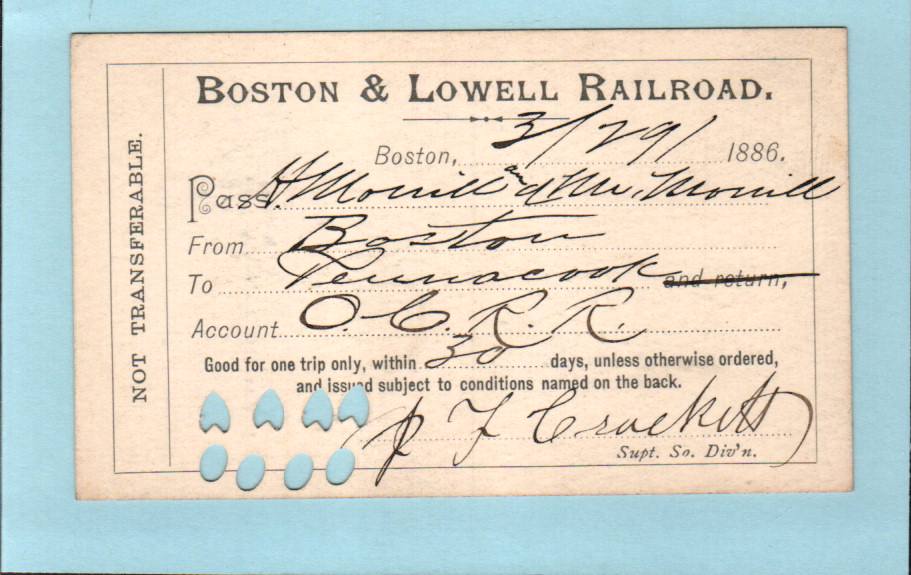 NOT TRANSFERABLE.
BOSTON & LOWELL RAILROAD.
Boston, 3/29/ 1886.
Pass. H Morrill and Mr. Morrill
From Boston
To Pennacook and return,
Account O. C. R. R.
Good for one trip only, within 30 days, unless otherwise ordered,
and issued subject to conditions named on the back.
J F Crockett
Supt. So. Div'n.